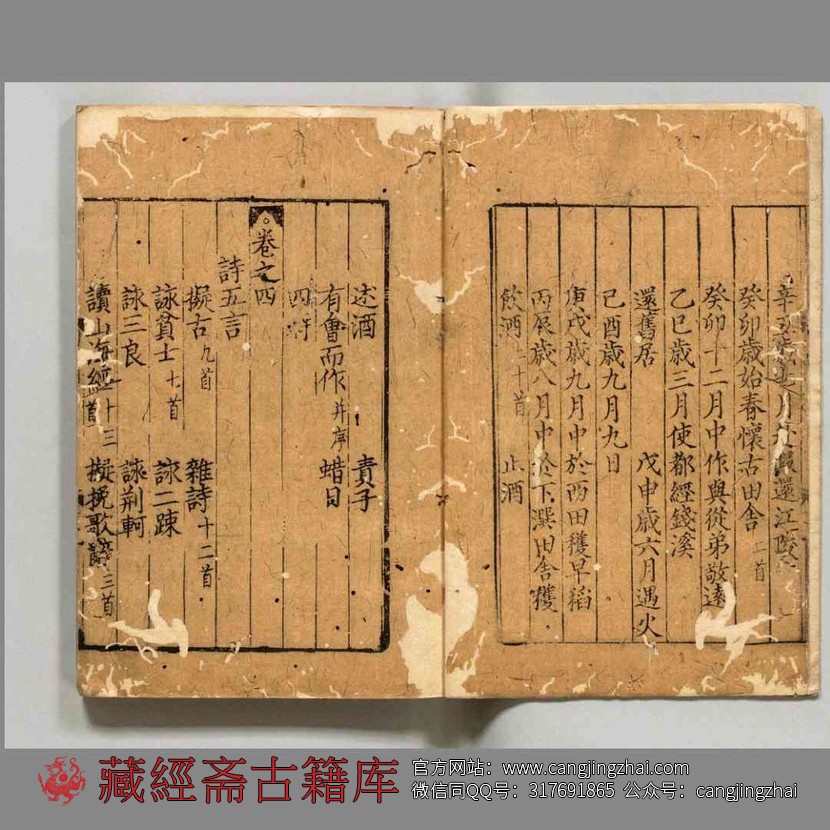 辛丑歲七月赴假還江陵
癸卯歲始春懷古田舍 二首
癸卯十二月中作與從弟敬遠
乙巳歲三月使都經錢溪
還舊居 戊申歲六月遇火
己酉歲九月九日
庚戌歲九月中於西田穫早稻
丙辰歲八月中於下潠田舍穫
飲酒 二十首 止酒
述酒 責子
有會而作 并序 蜡日
四時
卷之四
詩五言
擬古 九首 雜詩 十二首
詠貧士 七首 詠二疎
詠三良 詠荆軻
讀山海經 十三首 擬挽歌辭 三首
藏經斋古籍库
官方网站：www.cangjingzhai.com
微信同QQ号：317691865 公众号：cangjingzhai